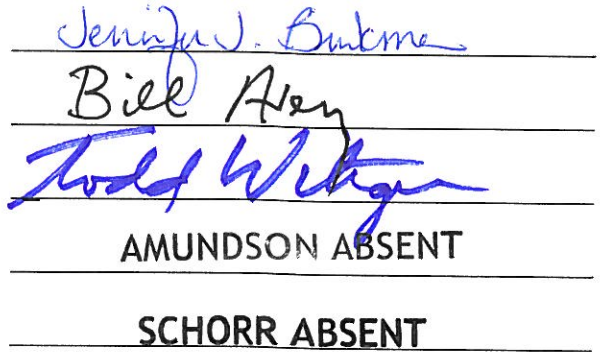 Jennifer J. Brinkman
Bill Avery
Todd Wiltgen
AMUNDSON ABSENT
SCHORR ABSENT